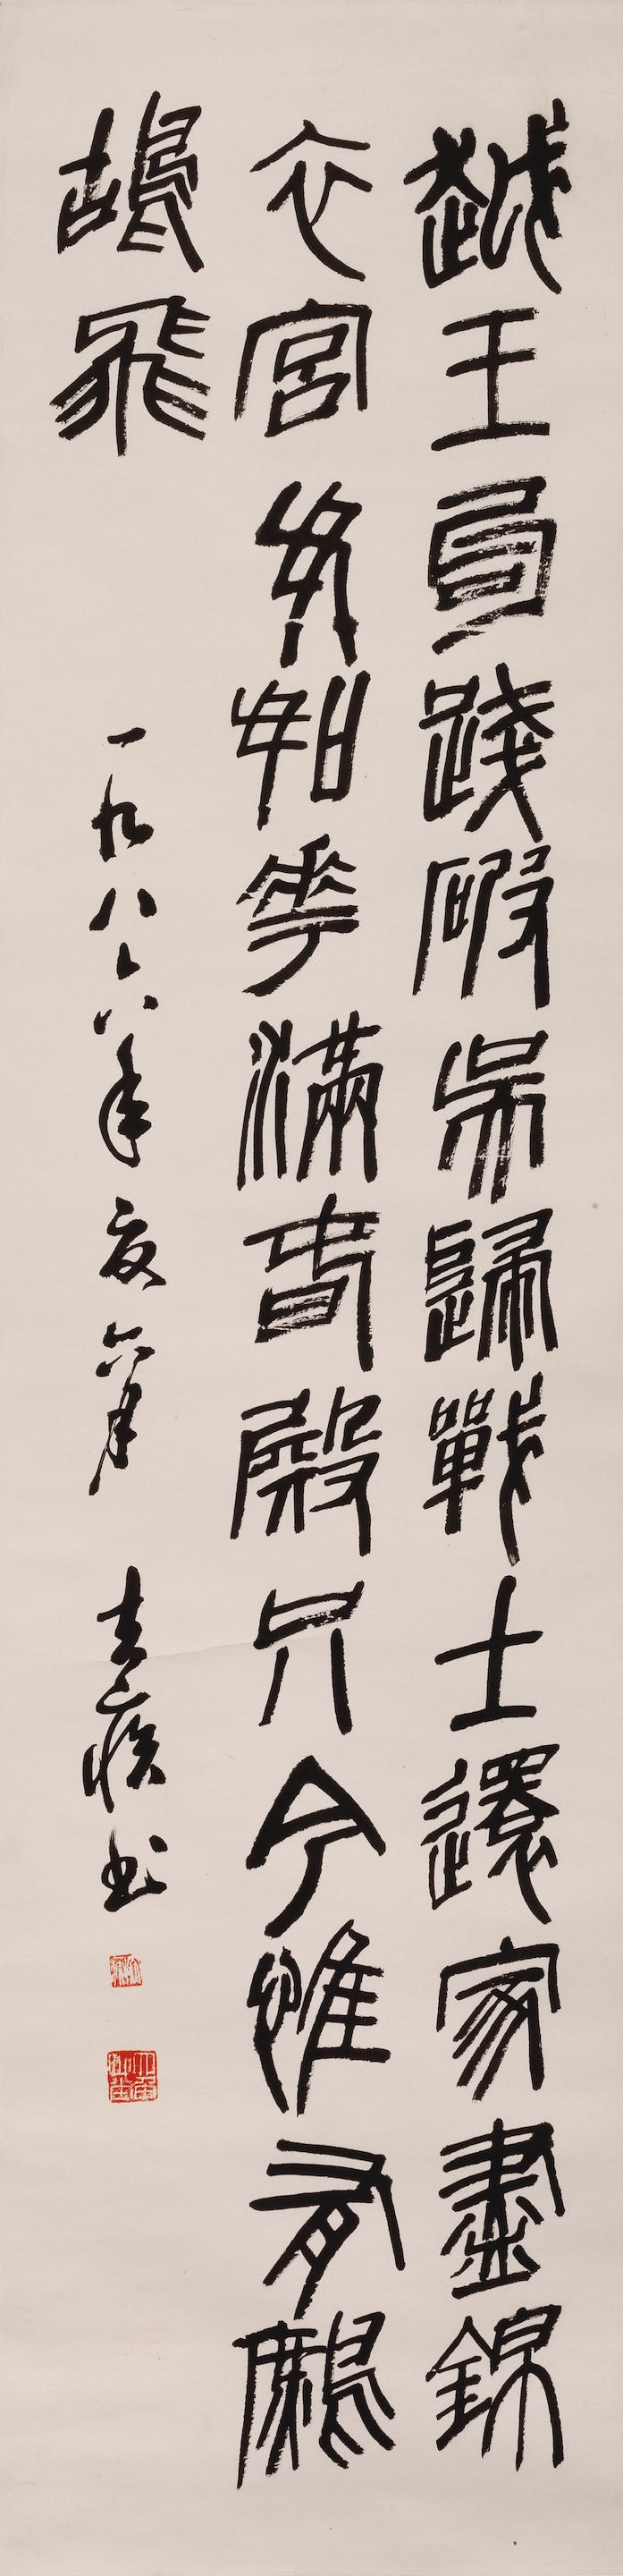 越王句踐破吳歸戰士還家盡錦
衣宮女如花滿春殿只今惟有鷓
鴣飛
一九八六年夏六月 去疾書